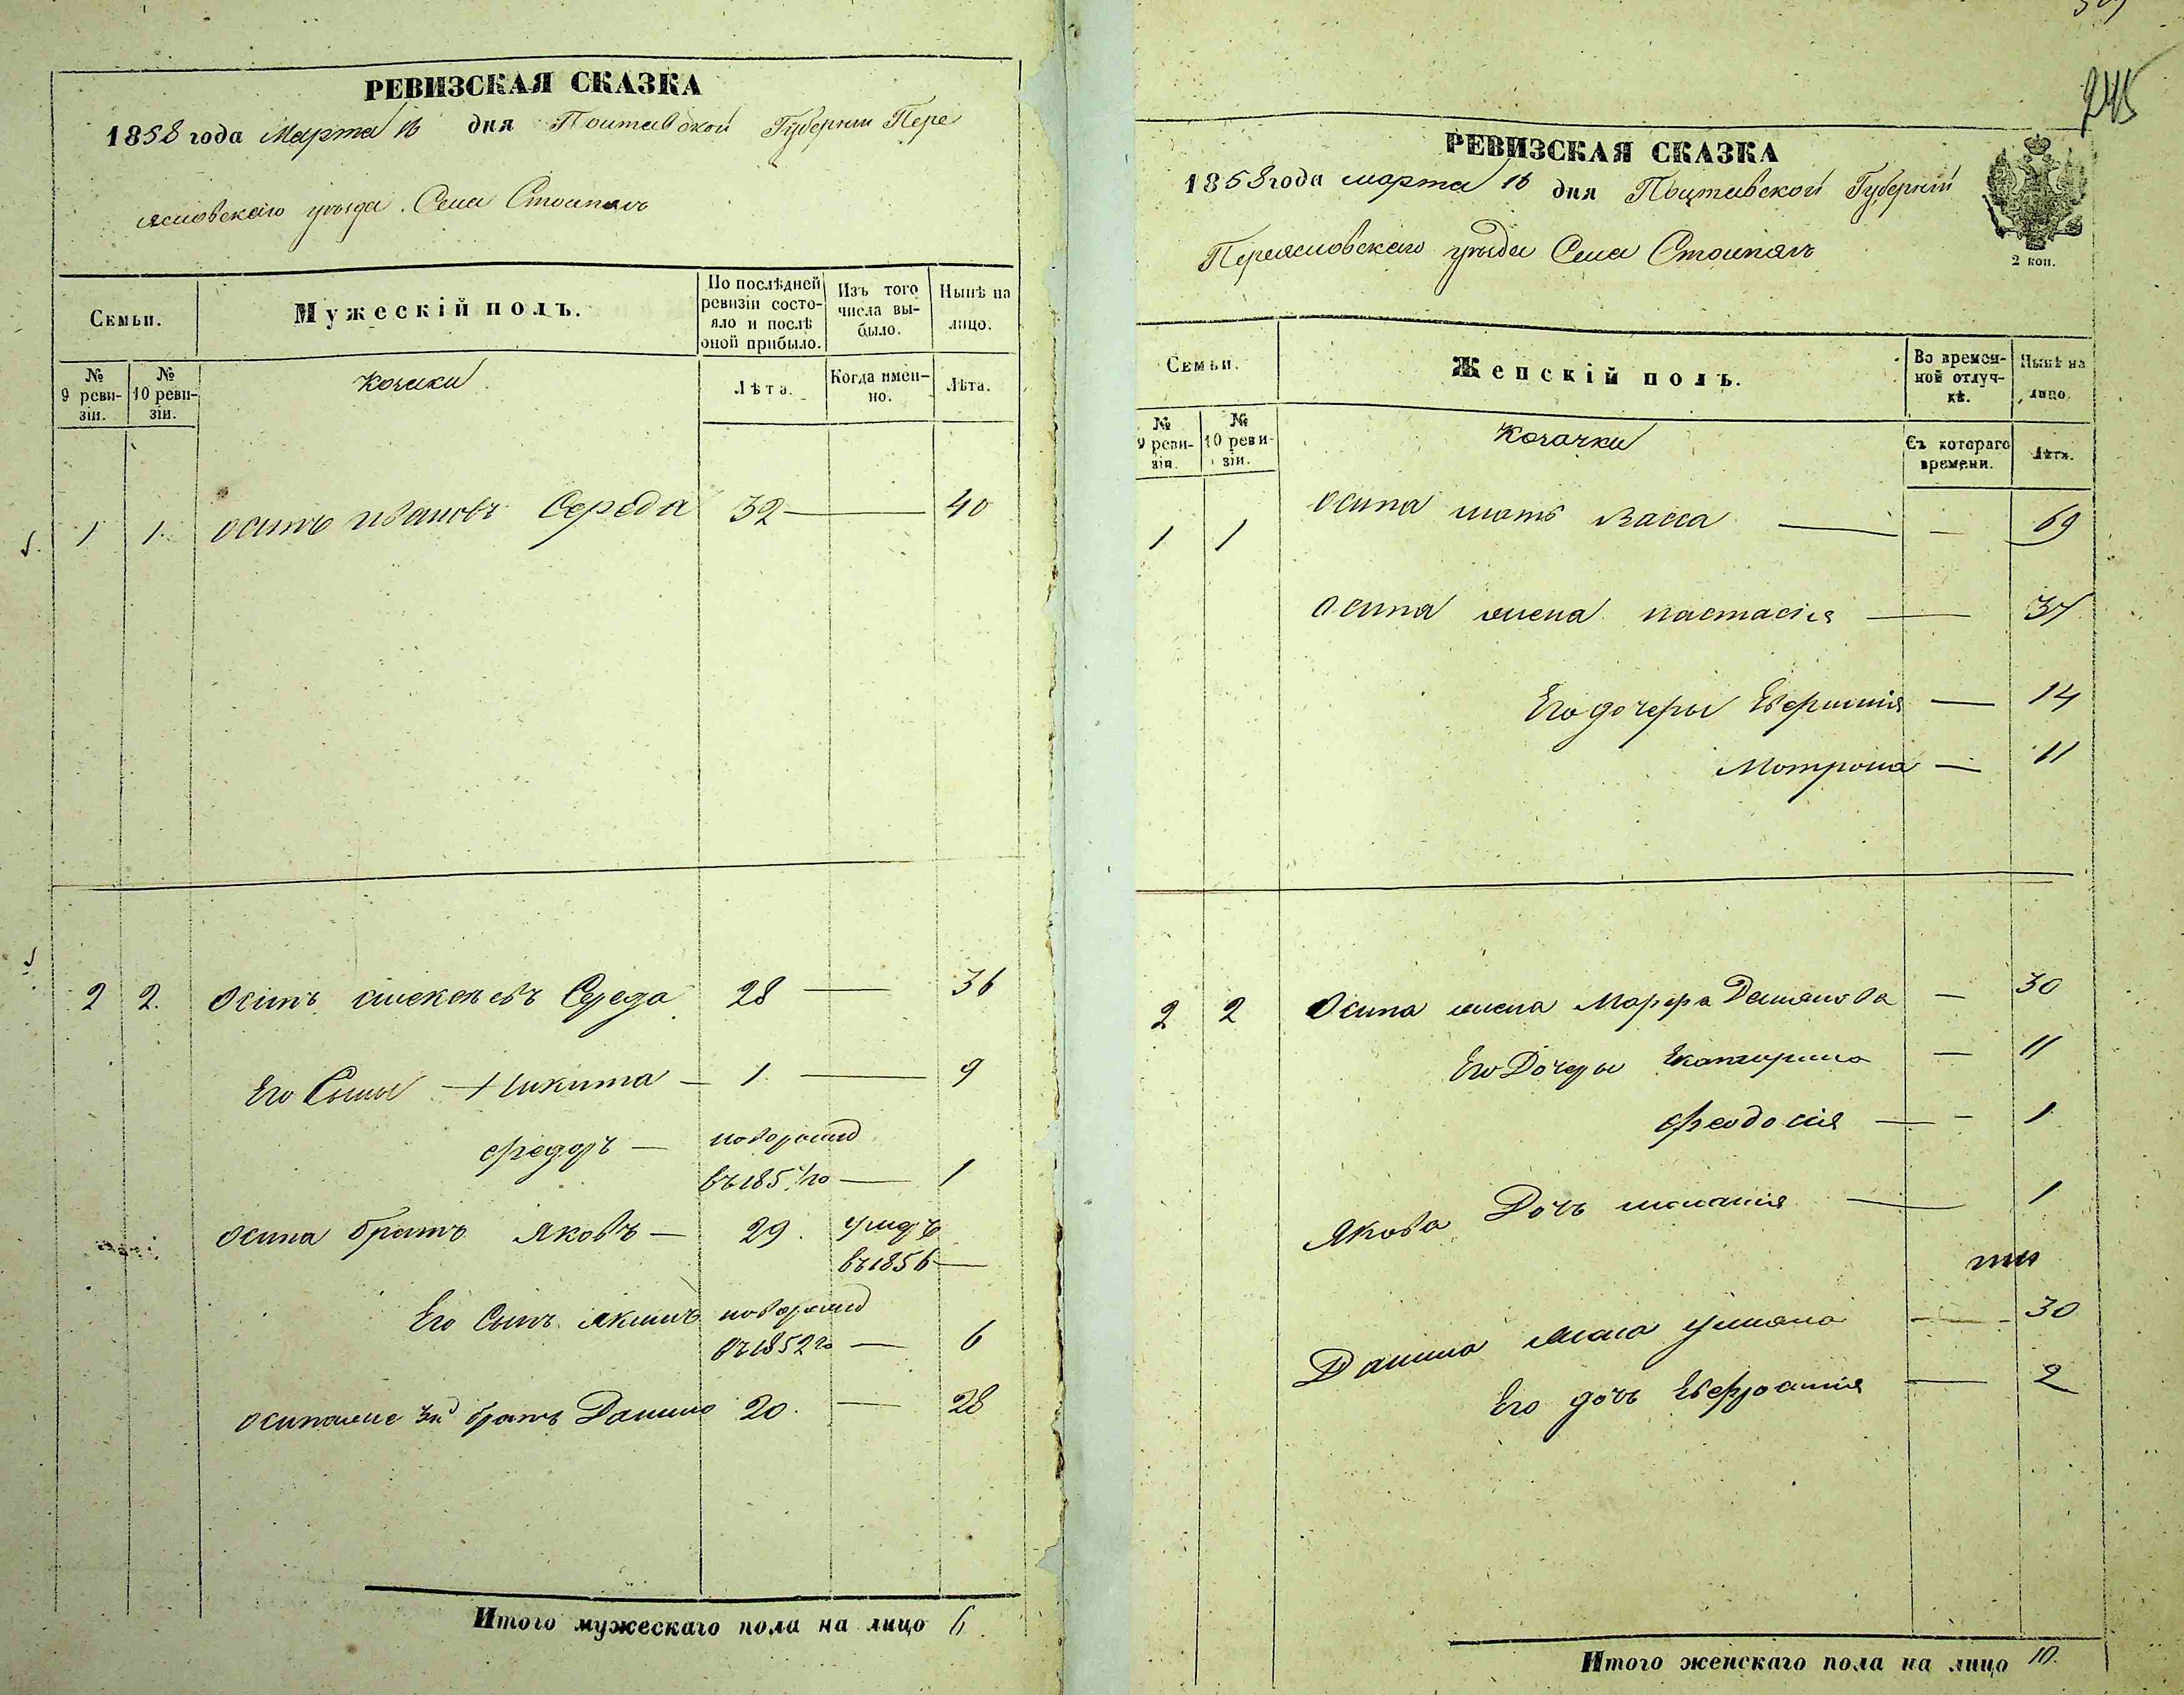 РЕВИЗСКАЯ СКАЗКА
1858 года Марта 16 дня Полтавской Губернии Пере
ясловского уезда. Села Столпяги
Семьи.
Мужескій полъ.
По послѣдней ревизіи состояло и послѣ оной прибыло.
Изъ того числа выбыло.
Нынѣ на лицо.
№ 9 ревизіи.
№ 10 ревизіи.
Козаки
Лѣта.
Когда именно.
Лѣта.
1 1. Осипъ Ивановъ Середа 32 — 40
2 2. Осипъ Алексѣевъ Середа 28 — 36
Его Сыны — 1 Никита — 1. — 9
Федоръ — новорожд
въ 1857 го — 1
Осипа братъ Яковъ — 29. умеръ
въ 1856 —
Его Сынъ Якимъ новорожд
въ 1852 го — 6
Осипа же 2й братъ Данило 20. — 28
Итого мужескаго пола на лицо 6.
245
РЕВИЗСКАЯ СКАЗКА
1858 года марта 16 дня Полтавской Губернии
Переясловского уезда Села Столпяги
2 коп.
Семьи.
Женскій полъ.
Во временной отлучкѣ.
Нынѣ на лицо.
№ 9 ревизіи.
№ 10 ревизіи.
Козачки
Съ котораго времени.
Лѣта.
1 1 Осипа мать Васса — — 69
Осипа жена Настасія — 37
Его дочеры Евфимія — 14
Мотрона — 11
2 2 Осипа жена Марфа Демянова — 30
Его Дочеры Екатерина — 11
Феодосія — — 1
Якова Дочь Меланія — 1
Данила жена Ульяна — 30
Его дочь Евфросинія — 2
Итого женскаго пола на лицо 10.